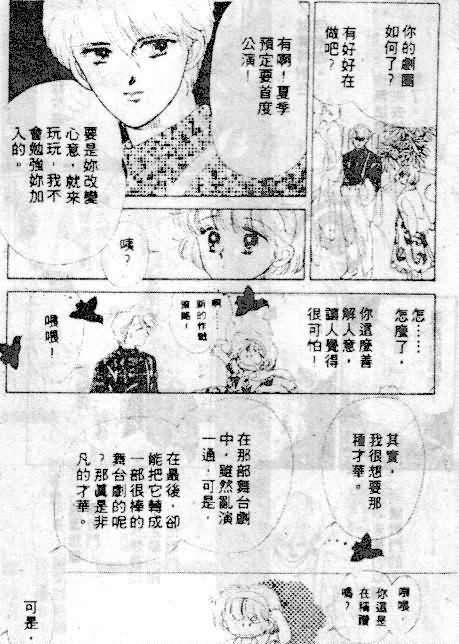 你的劇團
如何了？
有好好在
做吧？
有啊！夏季
預定要首度
公演！
要是妳改變
心意，就來
玩玩，我不
會勉強妳加
入的。
咦？
怎……
怎麼了，
你這麼善
解人意，
讓人覺得
很可怕！
啊……
新的作戰
策略！
喂喂！
其實，
我很想要那
種才華。
在那部舞台劇
中，雖然亂演
一通，可是，
在最後，卻
能把它轉成
一部很棒的
舞台劇的呢
？那真是非
凡的才華。
喂喂，
你這是
在稱讚
嗎？
可是，